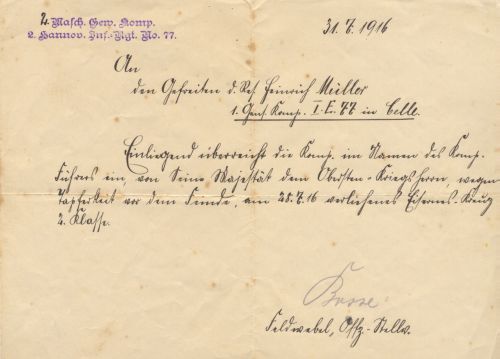 2. Masch. Gew. Komp.
2. Hannov. Inf.-Rgt. No. 77.
31.7.1916
An
den Gefreiten d. Res. Heinrich Müller
1. Gens. Komp. I.E. 77 in Celle.
Einliegend überreicht die Komp. im Namen des Komp.
Führers ein, von Seine Majestät dem Obersten-Kriegsherrn, wegen
Tapferkeit vor dem Feinde, am 28.7.16 verliehenes Eisernes-Kreuz
2. Klasse.
Feldwebel, Offz.-Stellv.